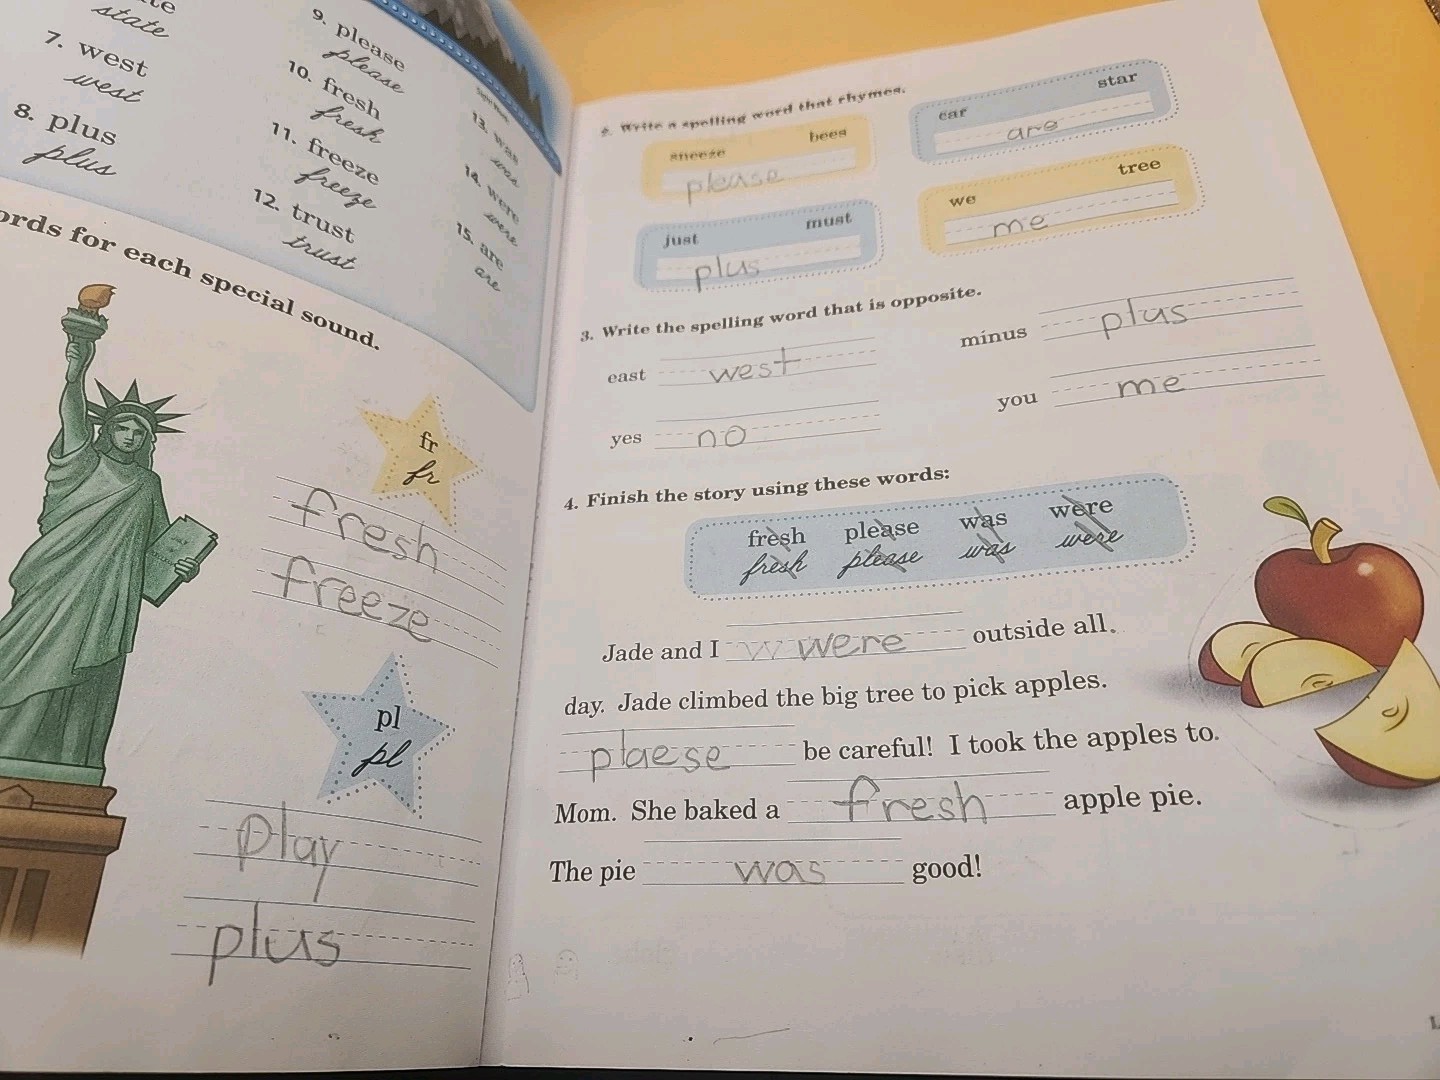 state
7. west
west
8. plus
plus
9. please
please
10. fresh
fresh
11. freeze
freeze
12. trust
trust
13. was
was
14. were
were
15. are
are
for each special sound.
fr
fr
fresh
freeze
pl
pl
play
plus
2. Write a spelling word that rhymes.
sneeze bees
please
car star
are
just must
plus
we tree
me
3. Write the spelling word that is opposite.
east west
minus plus
yes no
you me
4. Finish the story using these words:
fresh please was were
fresh please was were
Jade and I were outside all
day. Jade climbed the big tree to pick apples.
plaese be careful! I took the apples to
Mom. She baked a fresh apple pie.
The pie was good!